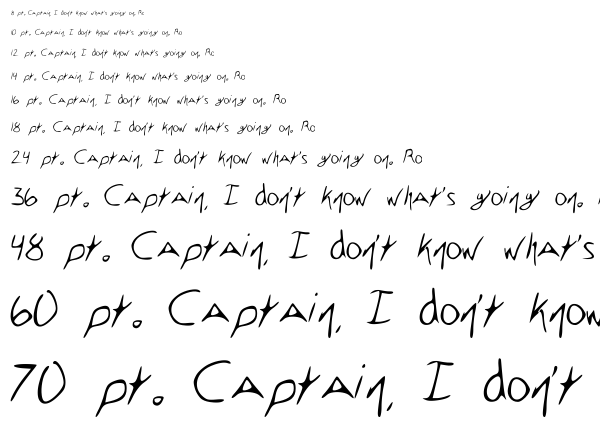 8 pt. Captain, I don't know what's going on. Ro
10 pt. Captain, I don't know what's going on. Ro
12 pt. Captain, I don't know what's going on. Ro
14 pt. Captain, I don't know what's going on. Ro
16 pt. Captain, I don't know what's going on. Ro
18 pt. Captain, I don't know what's going on. Ro
24 pt. Captain, I don't know what's going on. Ro
36 pt. Captain, I don't know what's going on.
48 pt. Captain, I don't know what's
60 pt. Captain, I don't know
70 pt. Captain, I don't